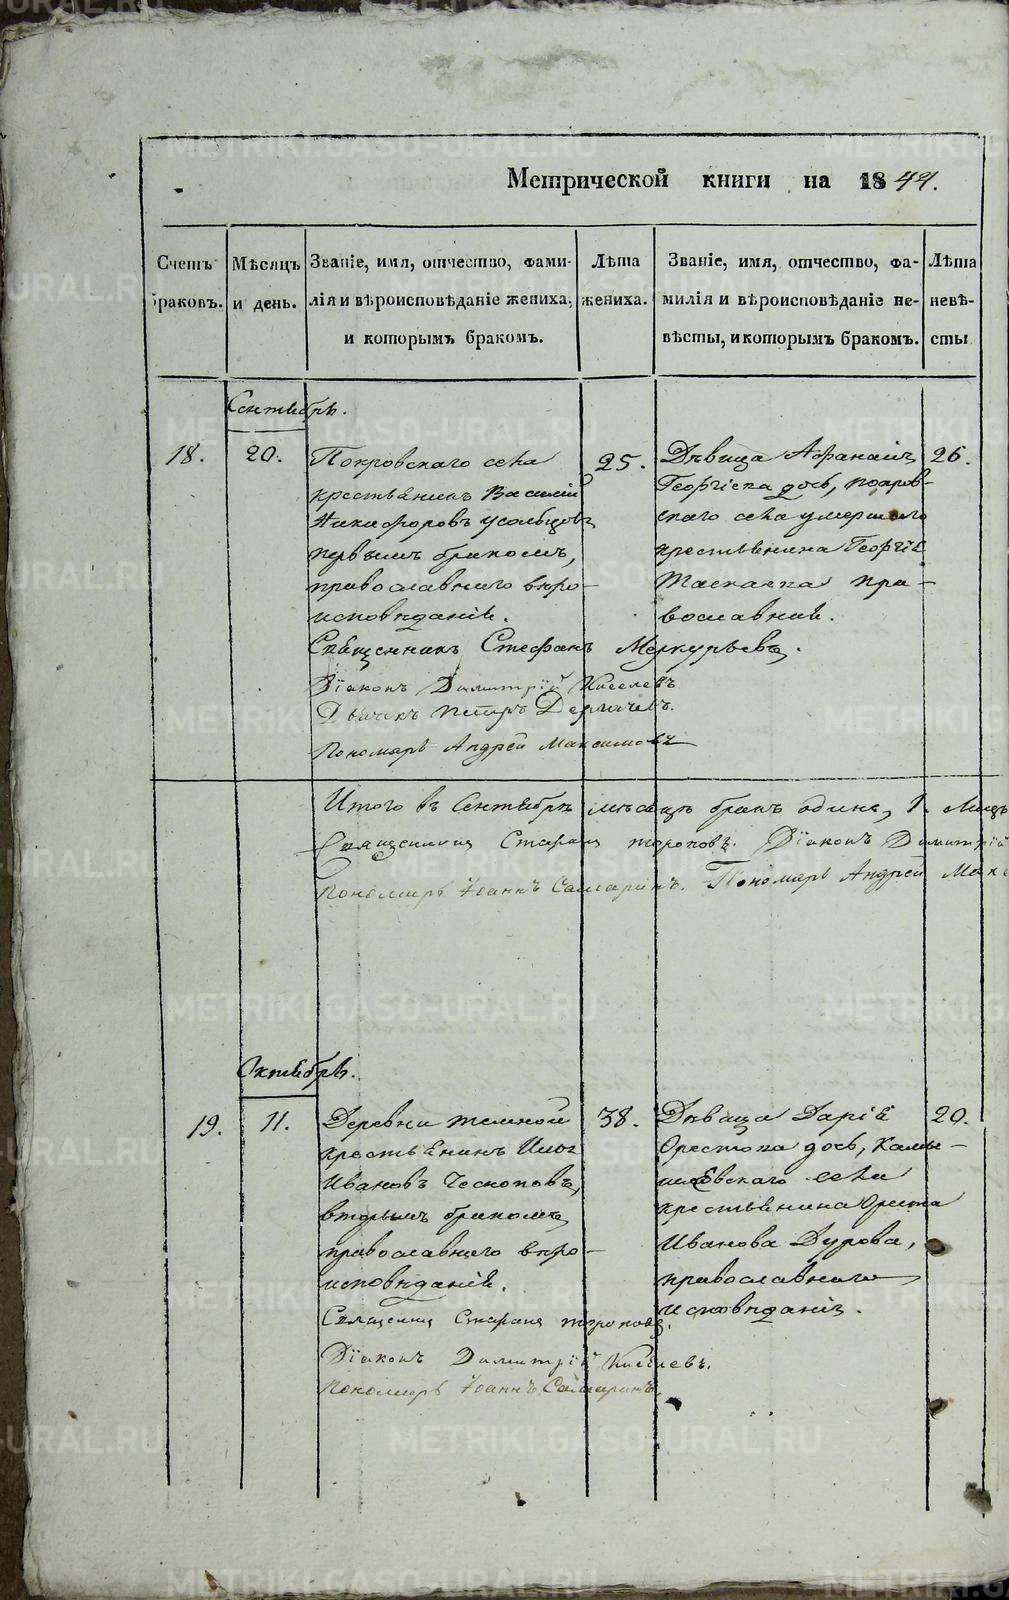 Метрической книги на 1844.
Счетъ браковъ.
Мѣсяцъ и день.
Званіе, имя, отчество, фами-
лія и вѣроисповѣданіе жениха,
и которымъ бракомъ.
Лѣта жениха.
Званіе, имя, отчество, фа-
милія и вѣроисповѣданіе не-
вѣсты, и которымъ бракомъ.
Лѣта невѣ-
сты
Сентябрь.
18.
20.
Покровскаго села
крестьянинъ Василій
Никифоровъ Усольцовъ
первымъ бракомъ,
православнаго вѣро-
исповѣданія.
25.
Дѣвица
Георгіева дочь, покров-
скаго села умершаго
крестьянина Георгія
пра-
вославная.
26.
Священникъ Стефанъ Меркурьевъ.
Діаконъ Димитрій Киселевъ
Дьячекъ Петръ
Пономарь Андрей Максимовъ
Итого въ Сентябрѣ мѣсяцѣ бракъ одинъ, 1.
Священникъ Діаконъ Димитрій
Пономарь Іоаннъ Самаринъ. Пономарь Андрей
Октябрь.
19.
11.
Деревни Темной
крестьянинъ Илья
Ивановъ
вторымъ бракомъ,
православнаго вѣро-
исповѣданія.
38.
Дѣвица Дарія
Орестова дочь, Камы-
шевскаго села
крестьянина Ореста
Иванова Дурова,
православнаго
исповѣданія.
20.
Священникъ
Діаконъ Димитрій Киселевъ.
Пономарь Іоаннъ Самаринъ.
METRIKI.GASO-URAL.RU